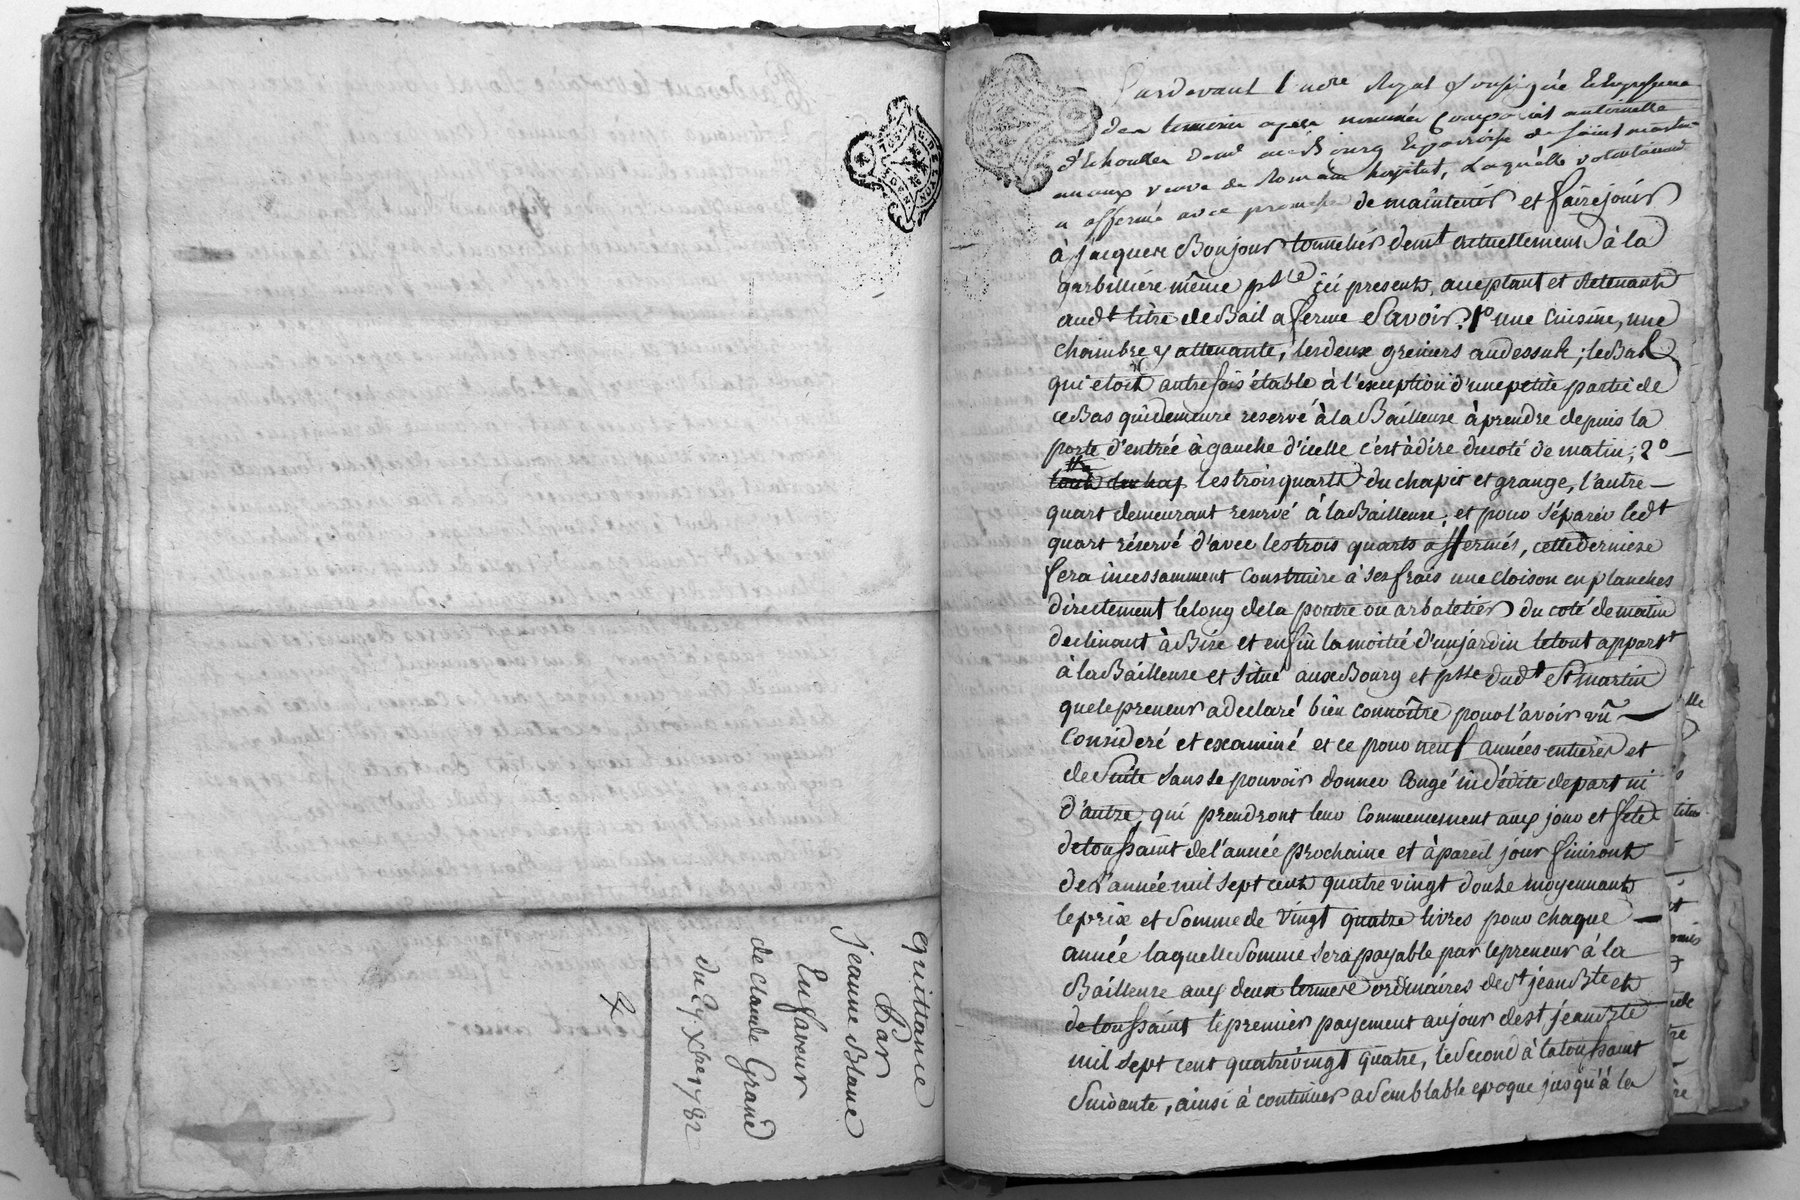 quittance
Par
jeanne Blanc
En faveur
de claude Grand
du 29 Xbre 1782
G. DE LYON
Pardevant le no.re Royal soussigné
des temoins apres nommés
Dem.t au Bourg et parroisse de saint martin
veuve de Romain laquelle volontairem.t
a affermé avec promesse de maintenir et faire jouir
à jacques Bonjour tonnelier dem.t actuellement à la
garbilliere même p.sse ici present, acceptant et Retenant
aud.t titre de Bail a ferme Savoir 1.o une cuisine, une
chambre y attenante, les deux greniers audessus; le Bas
qui etoit autrefois étable à l'exception d'une petite partie de
ce Bas qui demeure reservé à la Bailleuse à prendre depuis la
porte d'entrée à gauche d'icelle c'est à dire du coté de matin; 2.o
les trois quarts du chapit et grange, l'autre
quart demeurant reservé à la Bailleuse; et pour séparer led.t
quart réservé d'avec les trois quarts affermés, cette derniere
fera incessamment construire à ses frais une cloison en planches
directement le long de la poutre ou arbaletier du coté de matin
declinant à Bise et enfin la moitié d'un jardin le tout appart.t
à la Bailleuse et situé aux Bourg et p.sse dud.t St martin
que le preneur a declaré bien connoître pour l'avoir vû
Consideré et examiné et ce pour neuf années entieres et
de suite sans se pouvoir donner Congé ni dédite de part ni
d'autre, qui prendront leur commencement aux jour et fete
de toussaint de l'année prochaine et à pareil jour finiront
de l'année mil sept cent quatre vingt douze moyennant
le prix et somme de vingt quatre livres pour chaque
année laquelle somme sera payable par le preneur à la
Bailleuse aux deux termes ordinaires de S.t jean B.te et
de toussaint le premier payement au jour de St jean B.te
mil sept cent quatrevingt quatre, le second à la toussaint
suivante, ainsi à continuer a semblable epoque jusqu'à la